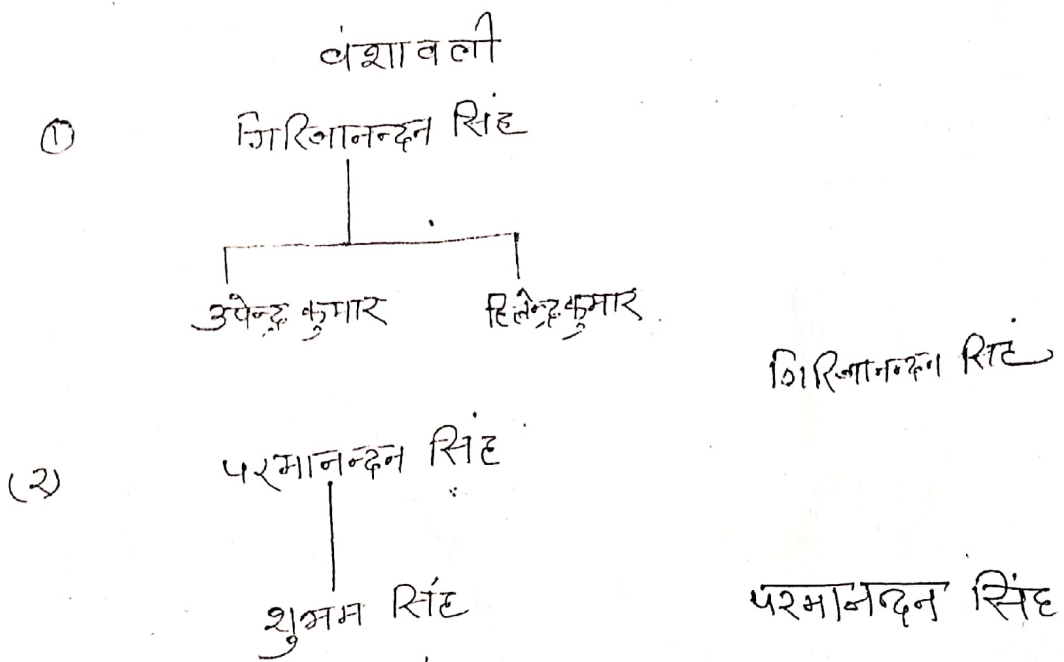 वंशावली
① गिरिजानन्दन सिंह
उपेन्द्र कुमार हितेन्द्र कुमार
गिरिजानन्दन सिंह
(२) परमानन्दन सिंह
शुभम सिंह परमानन्दन सिंह